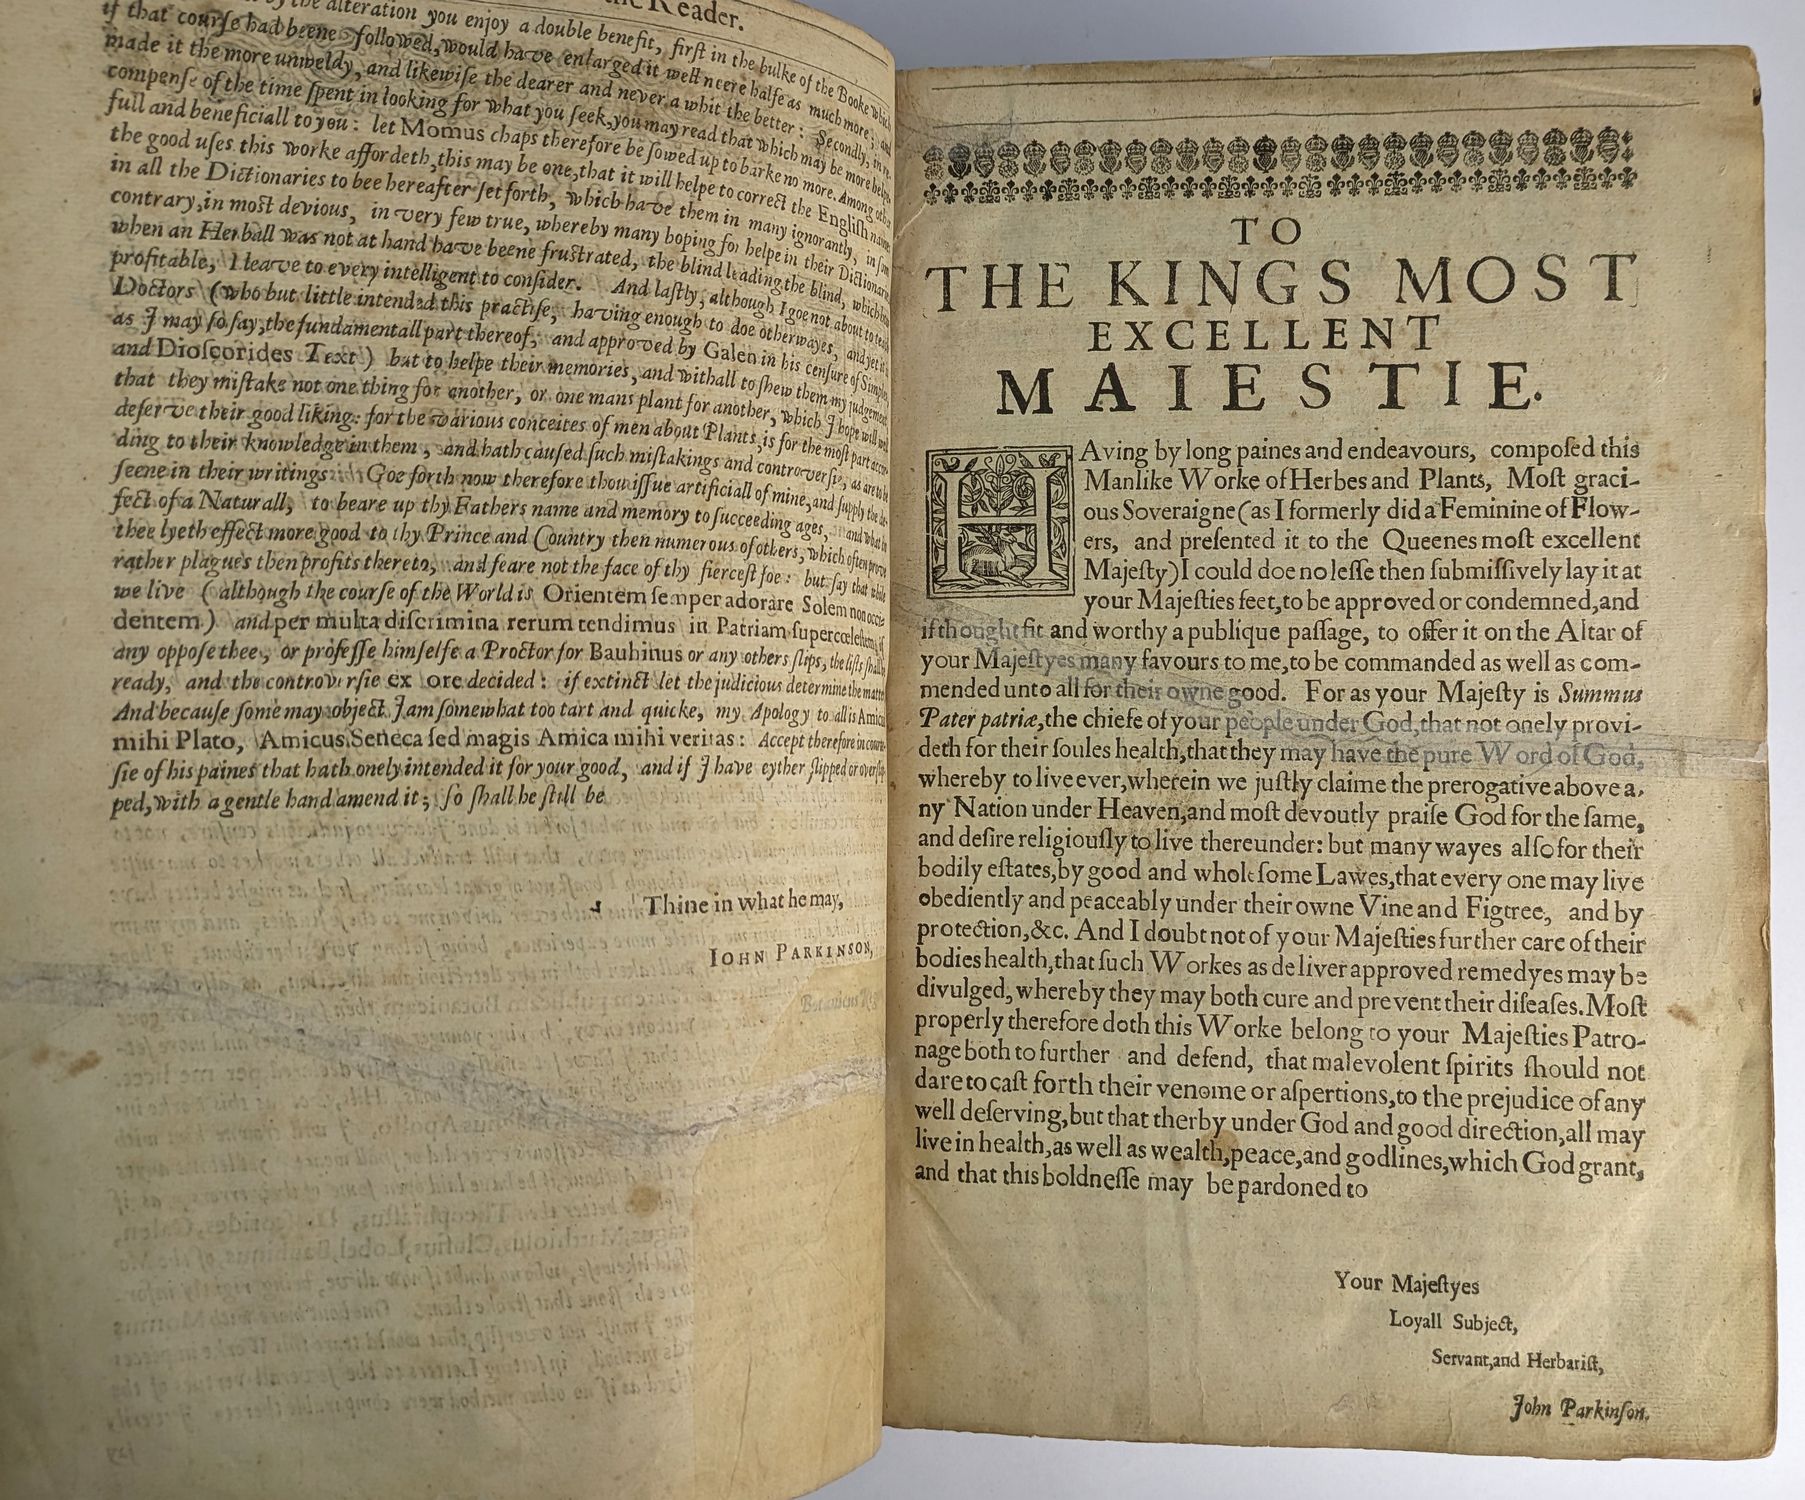 the Reader.
by the alteration you enjoy a double benefit, firſt in the bulke of the Booke which
if that courſe had beene followed, would have enlarged it well neere halfe as much more, and
made it the more unweldy, and likewiſe the dearer and never a whit the better: Secondly, in re-
compenſe of the time ſpent in looking for what you ſeek, you may read that which may be more helpe-
full and beneficiall to you: let Momus chaps therefore be ſowed up to barke no more. Among other
the good uſes this worke affordeth, this may be one, that it will helpe to correct the Engliſh names
in all the Dictionaries to bee hereafter ſet forth, which have them in many ignorantly, in ſom
contrary, in moſt devious, in very few true, whereby many hoping for helpe in their Dictionaries
when an Herball was not at hand have beene fruſtrated, the blind leading the blind, which how
profitable, I leave to every intelligent to conſider. And laſtly, although I goe not about to teach
Doctors (who but little intended this practiſe, having enough to doe otherwayes, and yet it is
as I may ſo ſay, the fundamentall part thereof, and approved by Galen in his cenſure of Simples,
and Dioſcorides Text) but to helpe their memories, and withall to ſhew them my judgement
that they miſtake not one thing for another, or one mans plant for another, which I hope will well
deſerve their good liking: for the various conceites of men about Plants, is for the moſt part accor-
ding to their knowledge in them, and hath cauſed ſuch miſtakings and controverſie, as are to be
ſeene in their writings. Goe forth now therefore thou iſſue artificiall of mine, and ſupply the de-
fect of a Naturall, to beare up thy Fathers name and memory to ſucceeding ages, and what in
thee lyeth effect more good to thy Prince and Country then numerous of others, which often prove
rather plagues then profits thereto, and feare not the face of thy fierceſt foe: but ſay that while
we live (although the courſe of the World is Orientem ſemper adorare Solem non occi-
dentem) and per multa diſcrimina rerum tendimus in Patriam ſupercœleſtem, if
any oppoſe thee, or profeſſe himſelfe a Proctor for Bauhinus or any others ſlips, the liſts ſhall be
ready, and the controverſie ex ore decided: if extinct let the judicious determine the matter
And becauſe ſome may object I am ſomewhat too tart and quicke, my Apology to all is Amicus
mihi Plato, Amicus Seneca ſed magis Amica mihi veritas: Accept therefore in courte-
ſie of his paines that hath onely intended it for your good, and if I have eyther ſlipped or overſlip-
ped, with a gentle hand amend it; ſo ſhall he ſtill be
Thine in what he may,
IOHN PARKINSON,
TO
THE KINGS MOST
EXCELLENT
MAIESTIE.
HAving by long paines and endeavours, compoſed this
Manlike Worke of Herbes and Plants, Moſt graci-
ous Soveraigne (as I formerly did a Feminine of Flow-
ers, and preſented it to the Queenes moſt excellent
Majeſty) I could doe no leſſe then ſubmiſſively lay it at
your Majeſties feet, to be approved or condemned, and
if thought fit and worthy a publique paſſage, to offer it on the Altar of
your Majeſtyes many favours to me, to be commanded as well as com-
mended unto all for their owne good. For as your Majeſty is Summus
Pater patriæ, the chiefe of your people under God, that not onely provi-
deth for their ſoules health, that they may have the pure Word of God,
whereby to live ever, wherein we juſtly claime the prerogative above a-
ny Nation under Heaven, and moſt devoutly praiſe God for the ſame,
and deſire religiouſly to live thereunder: but many wayes alſo for their
bodily eſtates, by good and wholeſome Lawes, that every one may live
obediently and peaceably under their owne Vine and Figtree, and by
protection, &c. And I doubt not of your Majeſties further care of their
bodies health, that ſuch Workes as deliver approved remedyes may be
divulged, whereby they may both cure and prevent their diſeaſes. Moſt
properly therefore doth this Worke belong to your Majeſties Patro-
nage both to further and defend, that malevolent ſpirits ſhould not
dare to caſt forth their venome or aſpertions, to the prejudice of any
well deſerving, but that therby under God and good direction, all may
live in health, as well as wealth, peace, and godlines, which God grant,
and that this boldneſſe may be pardoned to
Your Majeſtyes
Loyall Subject,
Servant, and Herbariſt,
John Parkinſon.